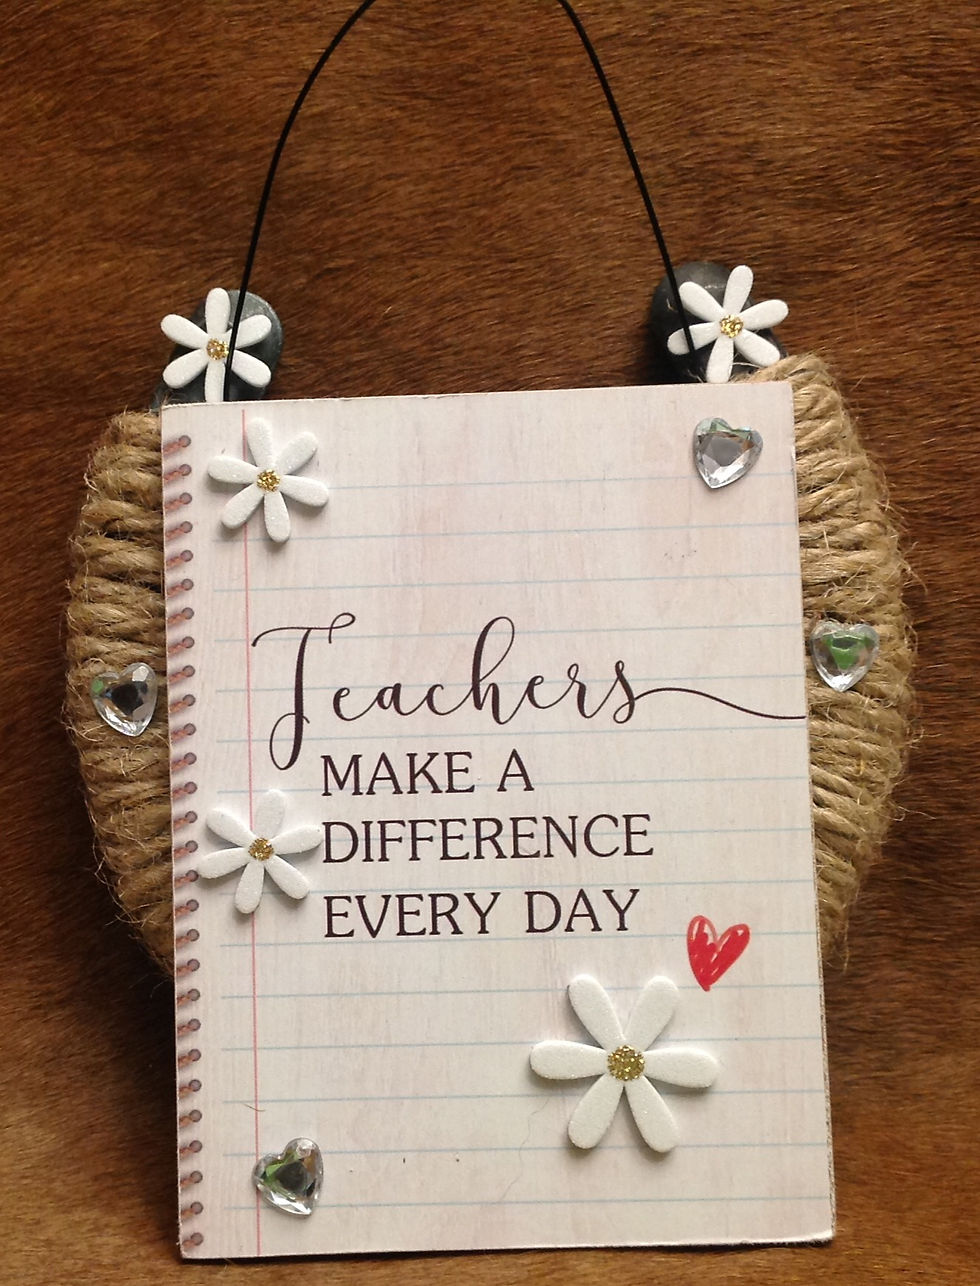 Teachers
MAKE A
DIFFERENCE
EVERY DAY